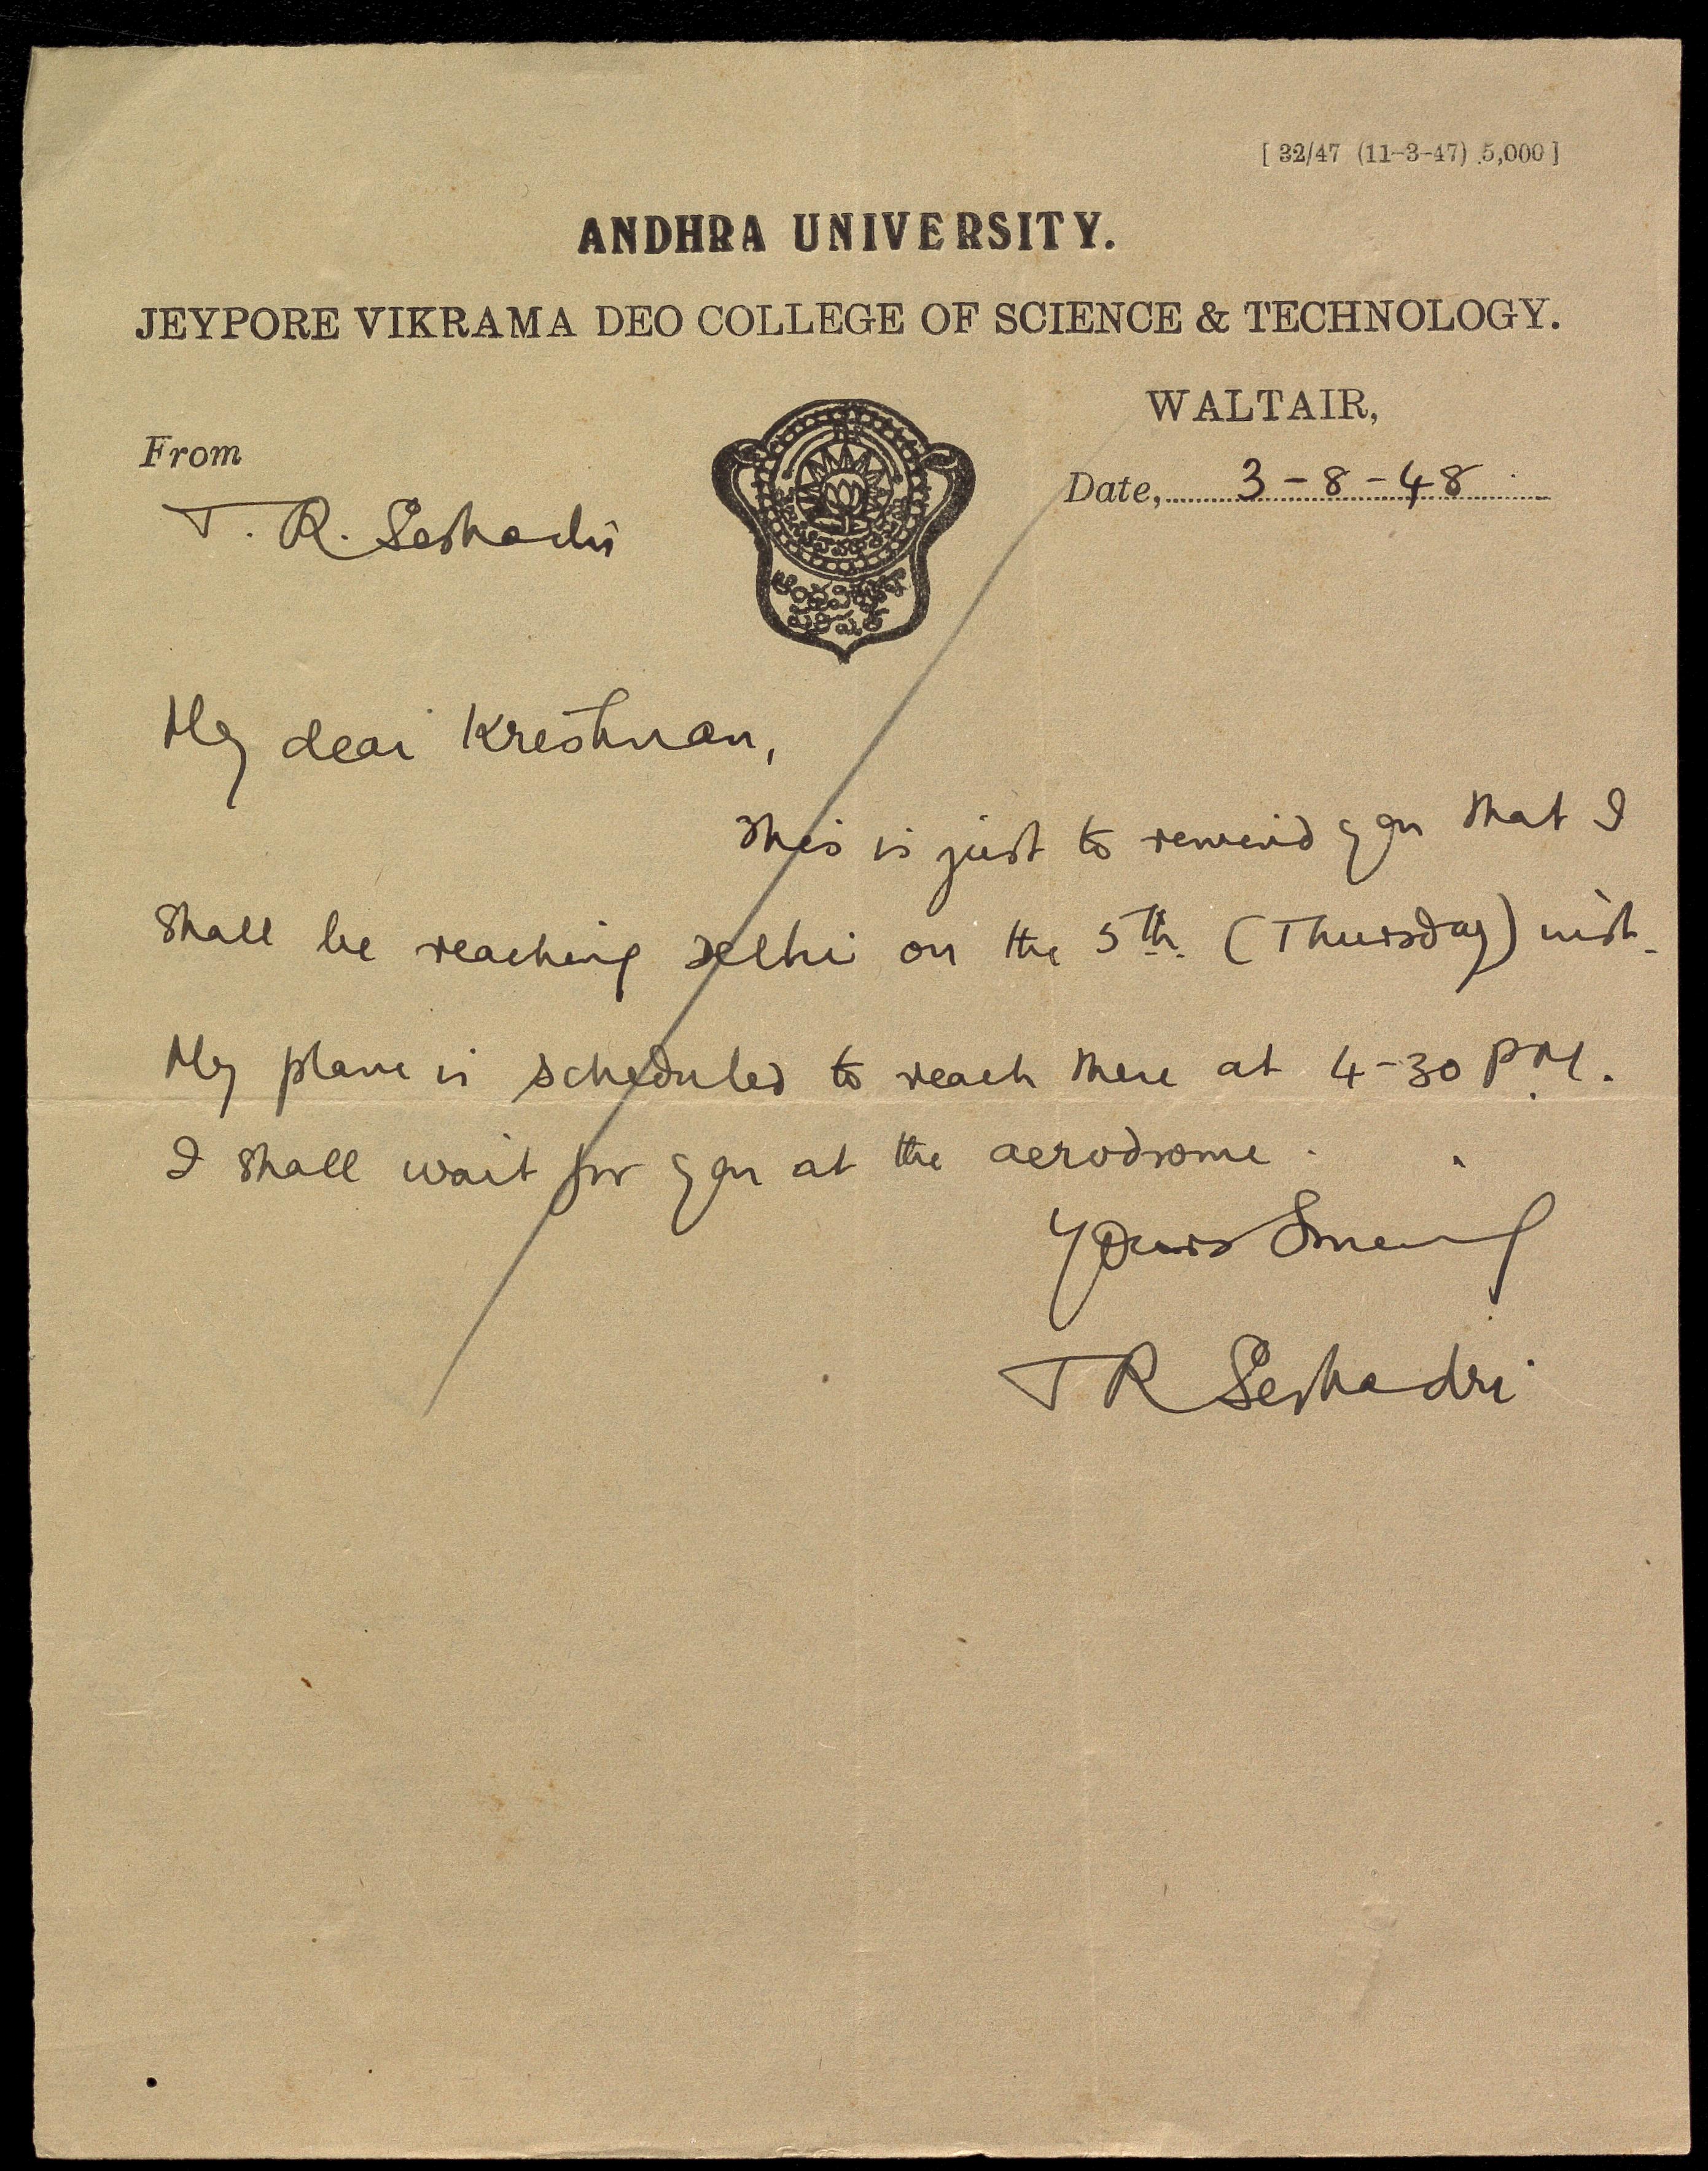 [ 32/47 (11-3-47) 5,000 ]
ANDHRA UNIVERSITY.
JEYPORE VIKRAMA DEO COLLEGE OF SCIENCE & TECHNOLOGY.
WALTAIR,
From
Date, 3-8-48
T. R. Seshadri
My dear Krishnan,
This is just to remind you that I
shall be reaching Delhi on the 5th. (Thursday) inst.
My plane is scheduled to reach there at 4-30 P.M.
I shall wait for you at the aerodrome.
Yours Sincerely
T R Seshadri